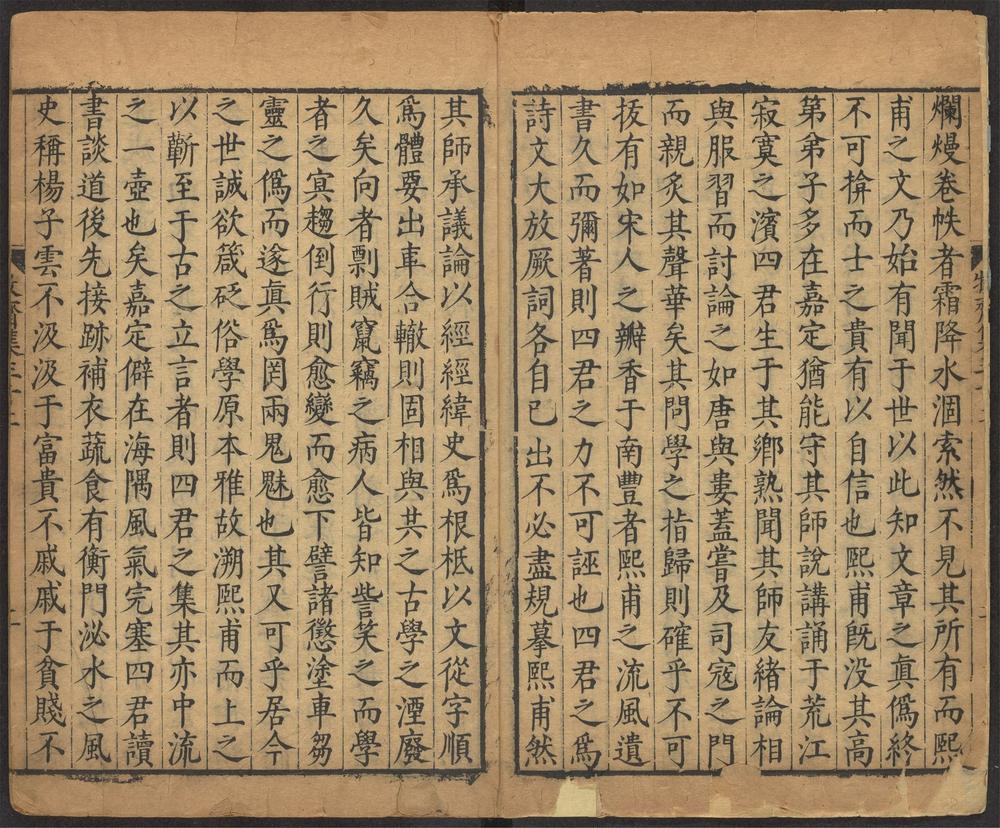 爛熳卷帙者霜降水涸索然不見其所有而熙
甫之文乃始有聞于世以此知文章之眞僞終
不可揜而士之貴有以自信也熙甫旣没其高
第弟子多在嘉定猶能守其師說講誦于荒江
寂寞之濱四君生于其鄉熟聞其師友緒論相
與服習而討論之如唐與婁蓋嘗及司寇之門
而親炙其聲華矣其問學之指歸則確乎不可
拔有如宋人之瓣香于南豐者熙甫之流風遺
書久而彌著則四君之力不可誣也四君之爲
詩文大放厥詞各自已出不必盡規摹熙甫然
其師承議論以經經緯史爲根柢以文從字順
爲體要出車合轍則固相與共之古學之湮廢
久矣向者剽賊竄竊之病人皆知訾笑之而學
者之冥趨倒行則愈變而愈下譬諸懲塗車芻
靈之僞而遂眞爲罔兩鬼魅也其又可乎居今
之世誠欲箴砭俗學原本雅故溯熙甫而上之
以蘄至于古之立言者則四君之集其亦中流
之一壺也矣嘉定僻在海隅風氣完塞四君讀
書談道後先接跡補衣蔬食有衡門泌水之風
史稱楊子雲不汲汲于富貴不戚戚于貧賤不